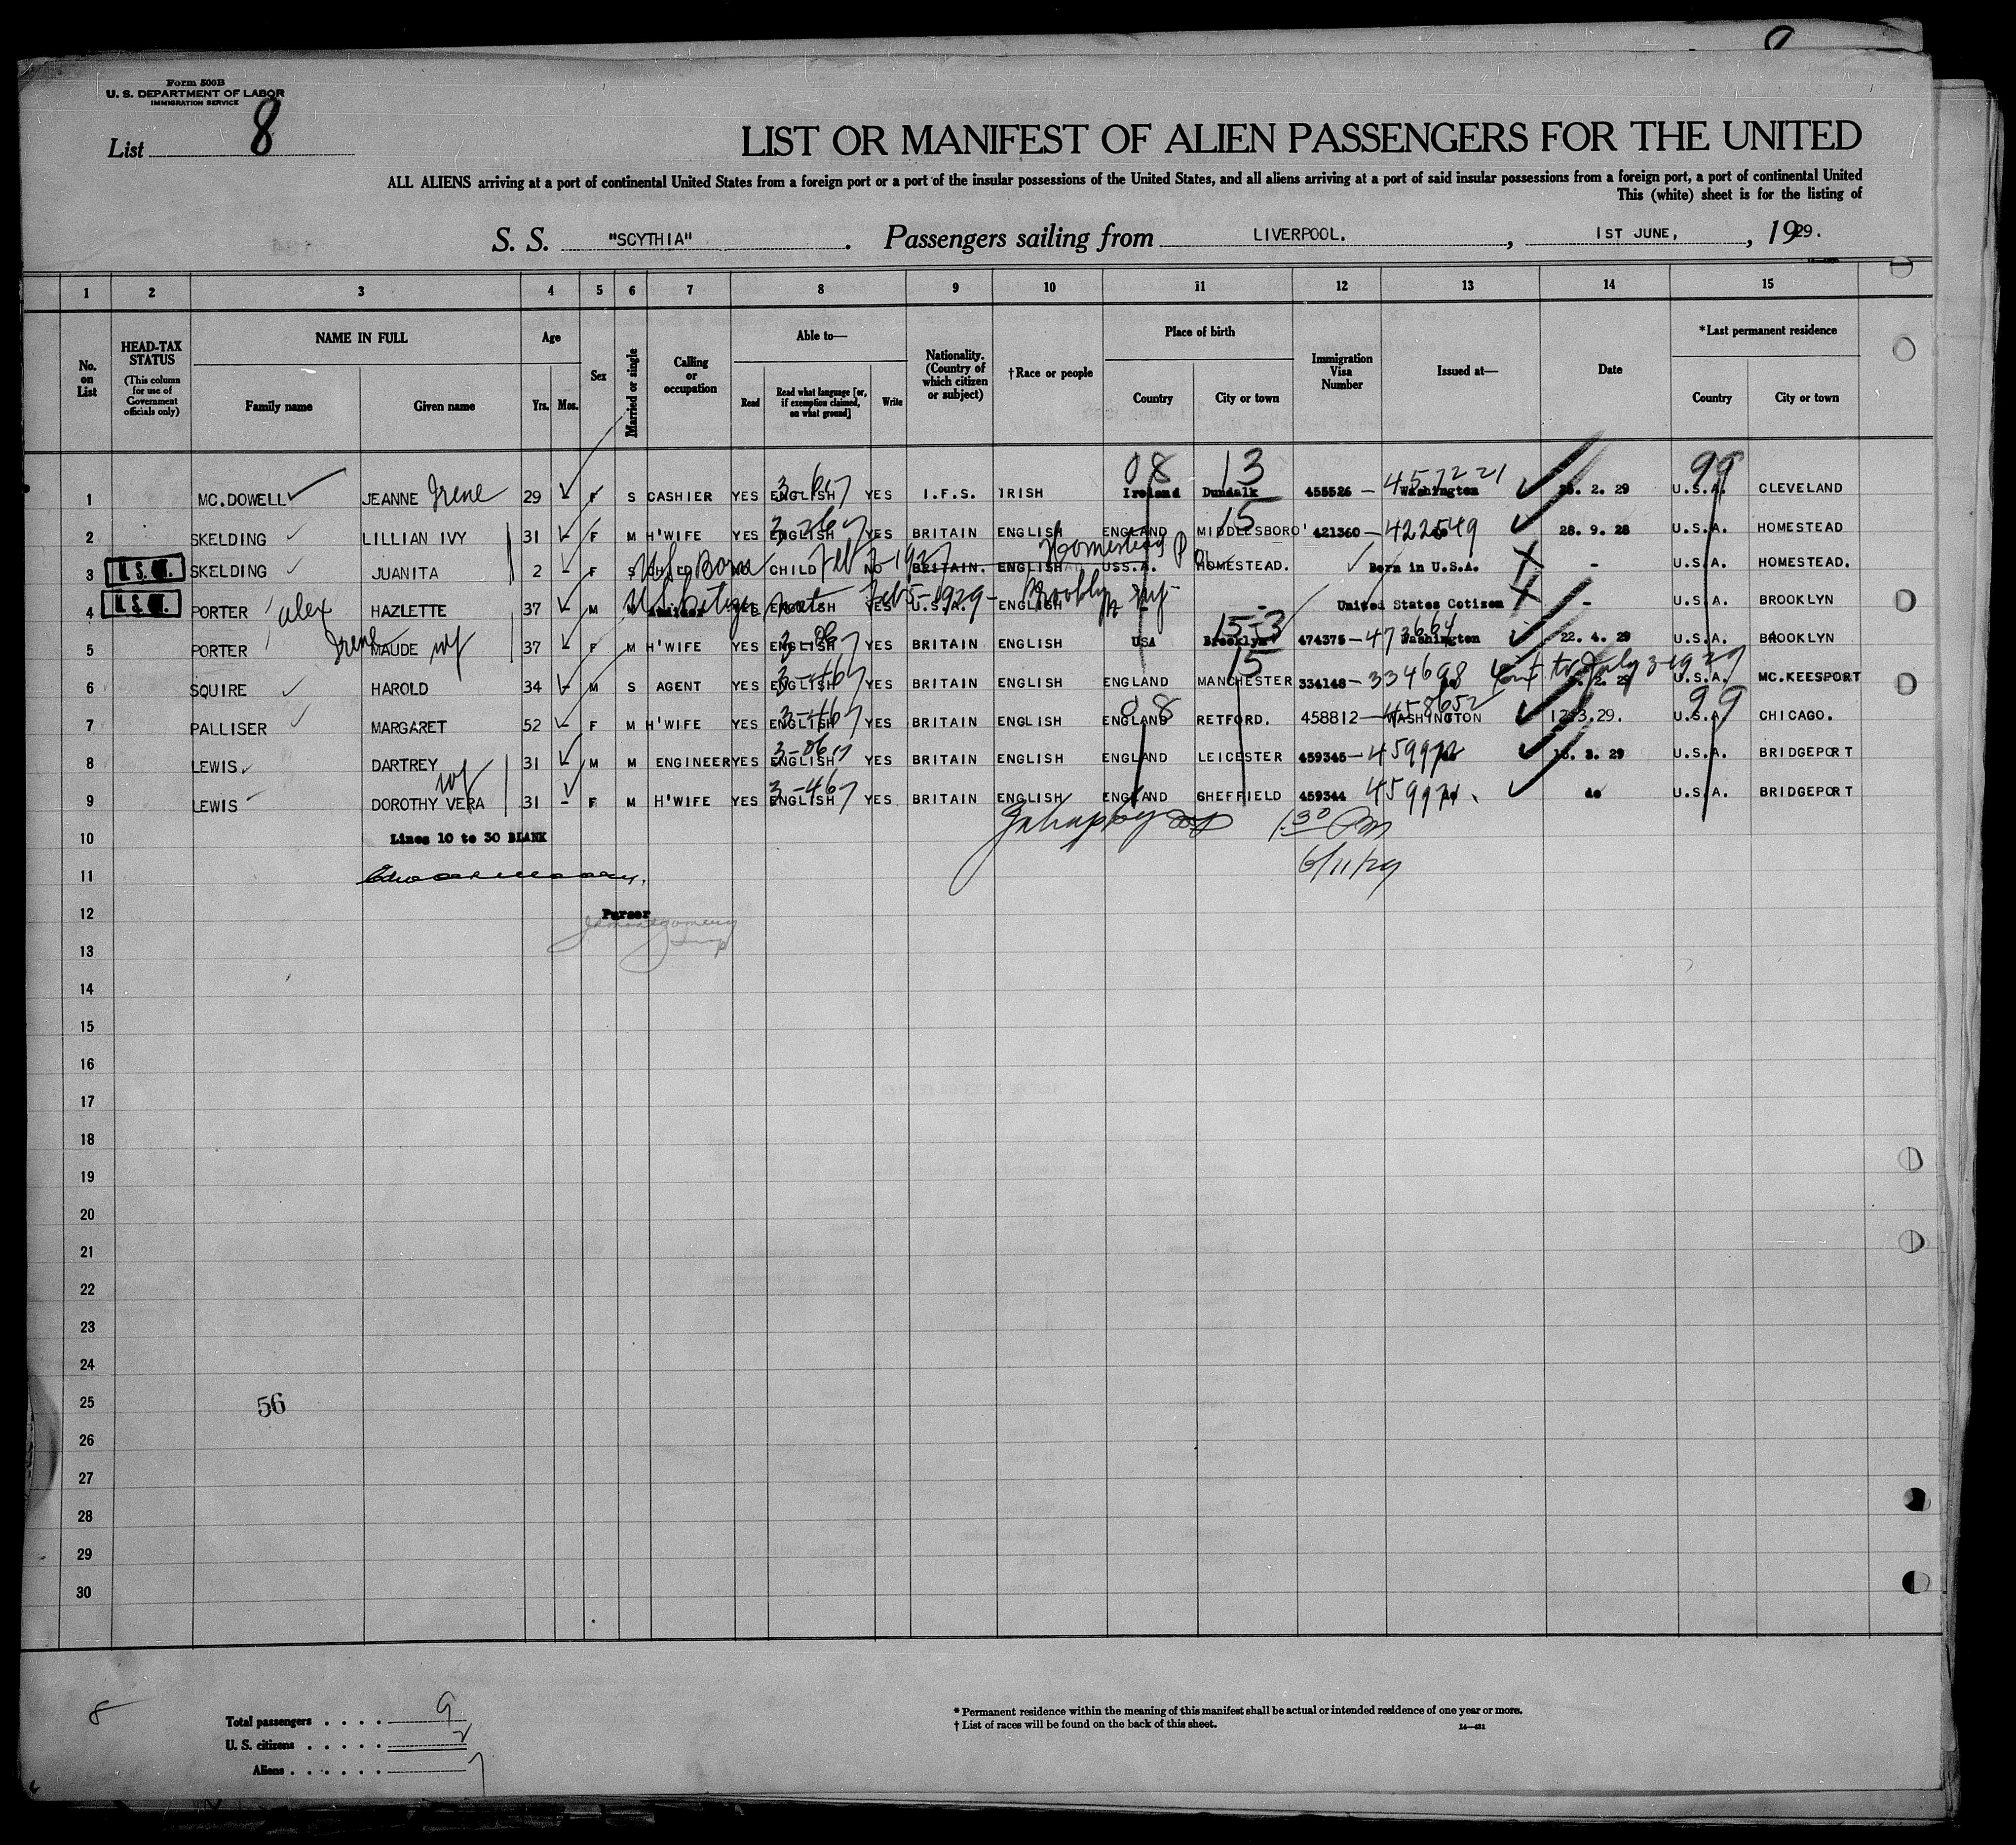 Form 500B
U. S. DEPARTMENT OF LABOR
IMMIGRATION SERVICE
List 8
LIST OR MANIFEST OF ALIEN PASSENGERS FOR THE UNITED
ALL ALIENS arriving at a port of continental United States from a foreign port or a port of the insular possessions of the United States, and all aliens arriving at a port of said insular possessions from a foreign port, a port of continental United
This (white) sheet is for the listing of
S. S. "SCYTHIA". Passengers sailing from LIVERPOOL. , 1ST JUNE, , 1929.
1 2 3 4 5 6 7 8 9 10 11 12 13 14 15
No. on List
HEAD-TAX STATUS
(This column for use of Government officials only)
NAME IN FULL
Family name Given name
Age
Yrs. Mos.
Sex
Married or single
Calling or occupation
Able to—
Read Read what language [or, if exemption claimed, on what ground] Write
Nationality. (Country of which citizen or subject)
†Race or people
Place of birth
Country City or town
Immigration Visa Number
Issued at—
Date
*Last permanent residence
Country City or town
08 13 99
1 MC.DOWELL JEANNE Irene 29 - F S CASHIER YES ENGLISH YES I.F.S. IRISH Ireland Dundalk 455526 — Washington . 2. 29 U.S.A. CLEVELAND
15
2 SKELDING LILLIAN IVY 31 - F M H'WIFE YES ENGLISH YES BRITAIN ENGLISH ENGLAND MIDDLESBORO' 421360 — 422549 28. 9. 28 U.S.A. HOMESTEAD
Homestead Pa
3 U.S. CIT. SKELDING JUANITA 2 - F S U.S. Born CHILD Feb NO 1927 BRITAIN. ENGLISH USS.A. HOMESTEAD. Born in U.S.A. - U.S.A. HOMESTEAD.
4 U.S. CIT. PORTER Alex HAZLETTE 37 - M M U.S. Citizen YES ENGLISH YES U.S.A. Feb 5-1929- ENGLISH Brooklyn NY - United States Cotizen - U.S.A. BROOKLYN
15-3
5 PORTER Irene MAUDE wf 37 - F M H'WIFE YES ENGLISH YES BRITAIN ENGLISH USA Brooklyn 474375 — 473664 Washington 22. 4. 29 U.S.A. BROOKLYN
15
6 SQUIRE HAROLD 34 - M S AGENT YES ENGLISH YES BRITAIN ENGLISH ENGLAND MANCHESTER 334148 — 334698 to July 3-1929 . 2. 29 U.S.A. MC.KEESPORT
08 99
7 PALLISER MARGARET 52 - F M H'WIFE YES ENGLISH YES BRITAIN ENGLISH ENGLAND RETFORD. 458812 — 458652 WASHINGTON 12.3.29. U.S.A. CHICAGO.
8 LEWIS DARTREY 31 - M M ENGINEER YES ENGLISH YES BRITAIN ENGLISH ENGLAND LEICESTER 459345 — . 3. 29 U.S.A. BRIDGEPORT
9 LEWIS DOROTHY VERA wf 31 - F M H'WIFE YES ENGLISH YES BRITAIN ENGLISH ENGLAND SHEFFIELD 459344 do U.S.A. BRIDGEPORT
10 Lines 10 to 30 BLANK 1.30 Pm
11 6/11/29
12 Purser
Montgomery
13
14
15
16
17
18
19
20
21
22
23
24
25 56
26
27
28
29
30
8
Total passengers . . . . 9
U. S. citizens . . . . . 2
Aliens . . . . . . 7
* Permanent residence within the meaning of this manifest shall be actual or intended residence of one year or more.
† List of races will be found on the back of this sheet. 14—421